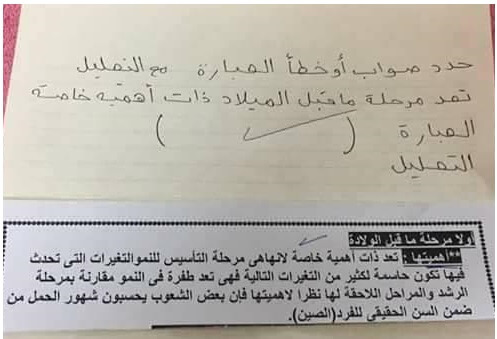 حدد صواب أو خطأ العبارة مع التعليل
تعد مرحلة ما قبل الميلاد ذات أهمية خاصة
العبارة ( ✓ )
التعليل
اولا مرحلة ما قبل الولادة
**أهميتها : تعد ذات أهمية خاصة لانهاهى مرحلة التأسيس للنموالتغيرات التى تحدث
فيها تكون حاسمة لكثير من التغيرات التالية فهى تعد طفرة فى النمو مقارنة بمرحلة
الرشد والمراحل اللاحقة لها نظرا لاهميتها فإن بعض الشعوب يحسبون شهور الحمل من
ضمن السن الحقيقى للفرد(الصين).